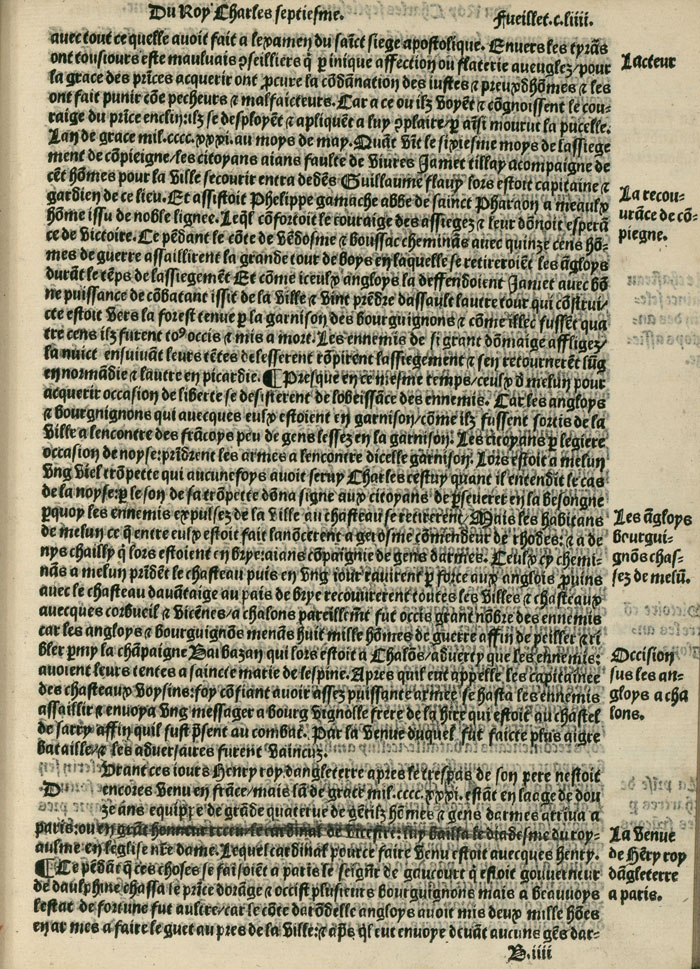 Du Roy Charles septiesme.
Fueillet.c.liiii.
avec tout ce quelle avoit fait a lexamen du sainct siege apostolique. Envers les tyrãs
ont tousiours este mauluais ꝯseilliers q̃ ꝑ inique affection ou flaterie aveuglez/pour
la grace des prĩces acquerir ont ꝓcure la cõdãnation des iustes ⁊ preuxdhõmes ⁊ les
ont fait punir cõe pecheurs ⁊ malfaicteurs. Car a ce ou ilz voyẽt ⁊ cõgnoissent le cou-
raige du prĩce enclin:ilz se desployẽt ⁊ apliquẽt a luy ꝯplaire/ꝑ aĩsi mourut la pucelle.
Lan de grace mil.cccc.xxxi.au moys de may. Quãt vĩt le sixiesme moys de lassiege
ment de cõpieigne/les citoyans aians faulte de vivres Jamet tillay acompaigne de
cẽt hõmes pour la ville secourir entra dedẽs Guillaume flauy lors estoit capitaine ⁊
gardien de ce lieu. Et assistoit Phelippe gamache abbe de sainct Pharaon a meaulx
hõme issu de noble lignee. Leq̃l cõfortoit le couraige des assiegez ⁊ leur dõnoit esperã
ce de victoire. Ce pẽdant le cõte de vẽdosme ⁊ boussac cheminãs avec quinze cens hõ-
mes de guerre assaillirent la grande tour de boys en laquelle se retireroiẽt les ãglops
durãt le tẽps de lassiegemẽt Et cõme iceulx anglops la deffendoient Jamet avec bõ
ne puissance de cõbatant issit de la ville ⁊ vint prẽdre dassault lautre tour qui cõstrui/
cte estoit vers la forest tenue ꝑ la garnison des bourguignons ⁊ cõme illec fussẽt qua
tre cens ilz furent to⁹ occis ⁊ mis a mort. Les ennemis de si grant dõmaige affligez/
la nuict ensuivãt leurs tẽtes delesserent rõpirent lassiegement ⁊ sen retournerẽt lũg
en normãdie ⁊ lautre en picardie. ¶Presque en ce mesme temps/ceulx d̃ melun pour
acquerir occasion de liberte se desisterent de lobeissãce des ennemis. Car les anglops
⁊ bourguignons qui avecques eulx estoient en garnison/cõme ilz fussent sortis de la
ville a lencontre des frãcoys peu de gens lessez en la garnison. Les citoyans ꝑ legiere
occasion de noyse:prĩdrent les armes a lencontre dicelle garnison. Lors estoit a melun
vng viel trõpette qui aucunefoys avoit seruy Charles cestuy quant il entendit le cas
de la noyse:ꝑ le son de sa trõpette dõna signe aux citoyans de ꝑseverer en la besongne
ꝑquoy les ennemis expulsez de la ville au chasteau se retirerent/Mais les habitans
de melun ce q̃ entre eulx estoit fait lanõcerent a gerosme cõmendeur de rhodes: ⁊ a de
nys chailly q̃ lors estoient en brye:aians cõpaignie de gens darmes. Ceulx cy chemi-
nãs a melun prĩdẽt le chasteau puis en vng iour ravirent ꝑ force aux anglois ꝓuins
avec le chasteau davãtaige au pais de brye recouurerent toutes les villes ⁊ chasteaux
avecques corbueil ⁊ vicẽnes/a chalons pareillemẽt fut occis grant nõbre des ennemis
car les anglops ⁊ bourguignõs menãs huit mille hõmes de guerre affin de peiller ⁊ ri
bler ꝑmy la chãpaigne Barbazan qui lors estoit a Chalõs/aduerty que les ennemis:
avoient leurs tentes a saincte marie de lespine. Apres quil eut appelle les capitaines
des chasteaux voysins:soy cõfiant avoir assez puissante armee se hasta les ennemis
assaillir ⁊ envoya vng messager a bourg vignolle frere de la hire qui estoit au chastel
de sarry affin quil fust p̃sent au combat. Par la venue duquel fut faicte plus aigre
bataille/⁊ les aduersaires furent vaincuz.
Durant ces iours Henry roy dangleterre apres le trespas de son pere nestoit
encores venu en frãce/mais lã de grace mil.cccc.xxxi. estãt en laage de dou
ze ans equippe de grãde quãterue de gẽtilz hõmes ⁊ gens darmes arriva a
paris:ou en grãt honneur receu le cardinal de vicestre: luy bailla le diadesme du roy-
aulme en leglise nr̃e dame. Lequel cardinal pource faire venu estoit avecques henry.
¶Ce pẽdant q̃ ces choses se faisoiẽt a paris le seignr̃ de gaucourt q̃ estoit gouverneur
de daulphine chassa le prĩce dorãge ⁊ occist plusieurs bourguignons mais a beauvoys
lestat de fortune fut aultre/car le cõte darõdelle angloys avoit mis deux mille hões
en armes a faire le guet au pres de la ville:⁊ ap̃s q̃l eut envoye devãt aucuns gẽs dar-
B.iiii
Lacteur
La recou-
urãce de cõ-
piegne.
Les ãglops
bourgui-
gnõs chas-
sez de melũ.
Occision
sus les an-
gloys a cha
lons.
La venue
de Hẽry roy
dãgleterre
a paris.